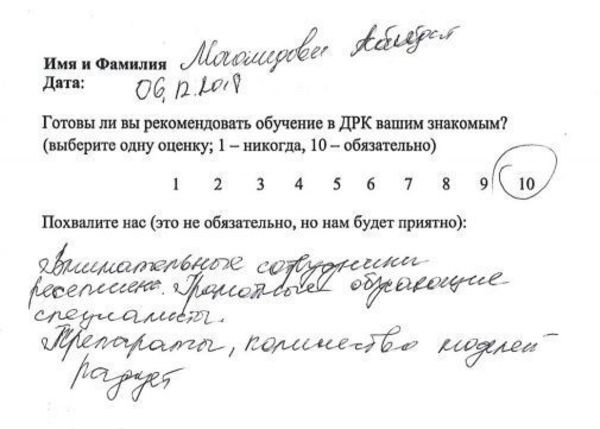 Имя и Фамилия Магомедова
Дата: 06.12.2018
Готовы ли вы рекомендовать обучение в ДРК вашим знакомым?
(выберите одну оценку; 1 – никогда, 10 – обязательно)
1 2 3 4 5 6 7 8 9 10
Похвалите нас (это не обязательно, но нам будет приятно):
Внимательные сотрудники
ресепшена. Грамотные обучающие
специалисты.
Препараты, количество моделей
радует